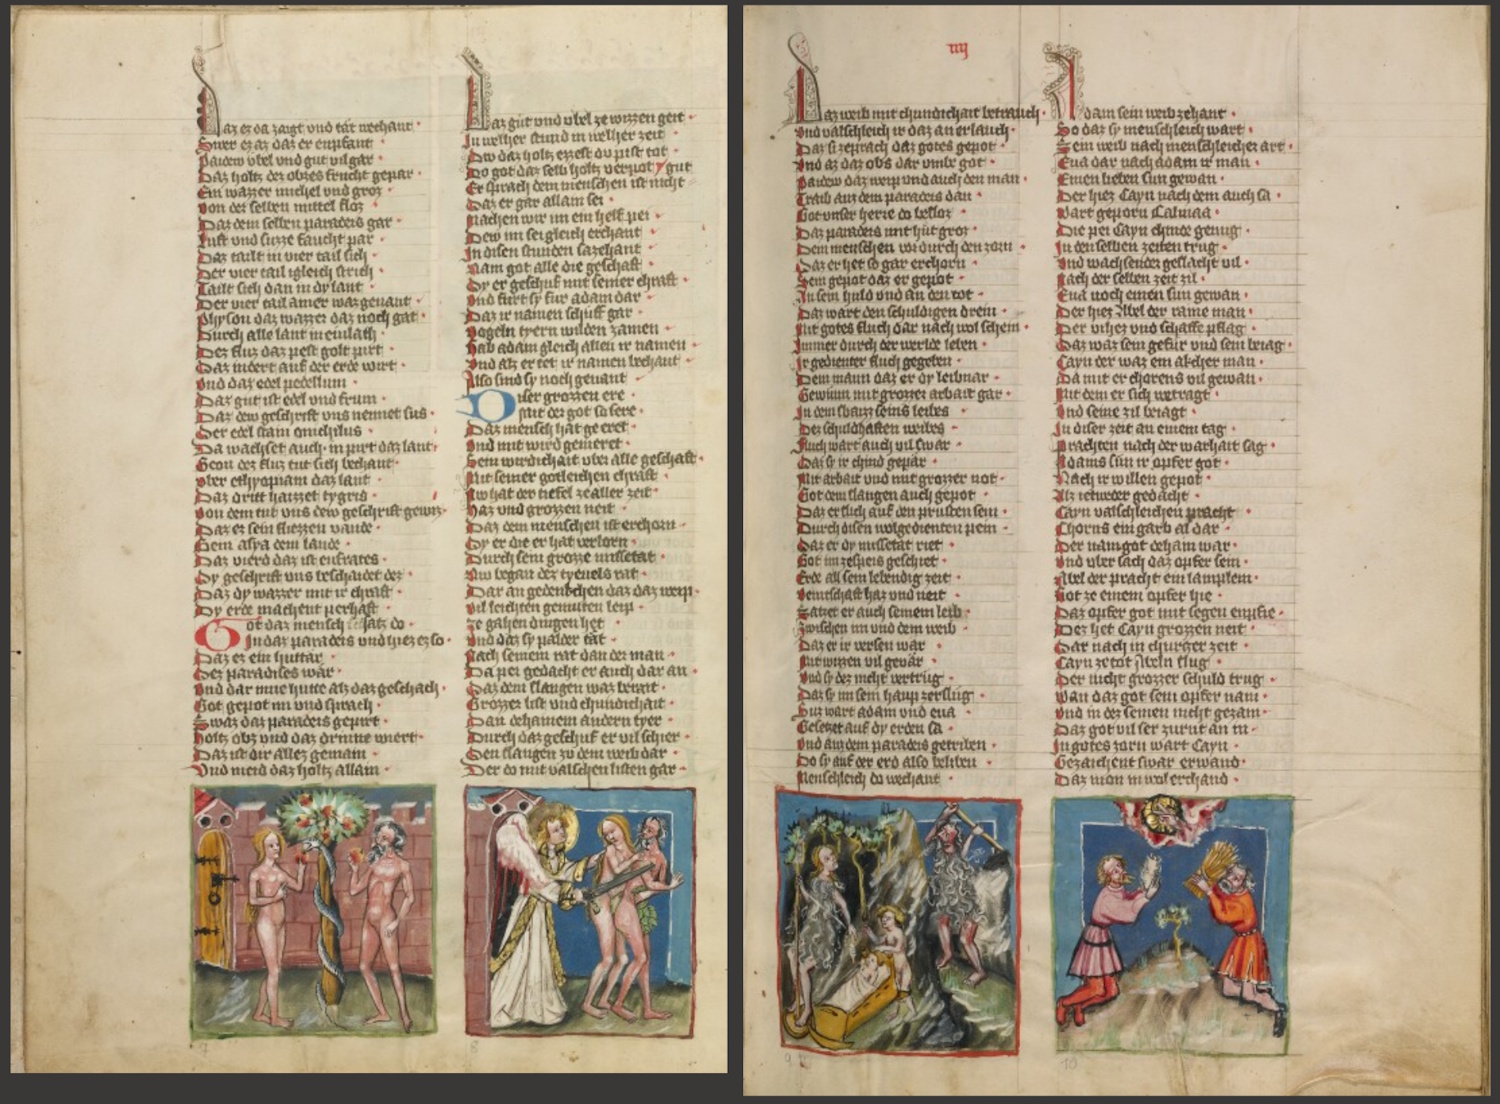 Daz ez da zaigt vnd tut wechant
Swer ez az daz er enpfant
Paidew vbel vnd gut vil gar
Daz holtz des obzes frucht gepar
Ein wazzer michel vnd groz
Von der selben mittel floz
Daz dem selben paradeis gar
Luft vnd suzze faucht par
Daz tailt in vier tail sich
Der vier tail igleich strich
Tailt sich dan in dy lant
Der vier tail ainer waz genant
Physon daz wazzer daz noch gat
Durch alle lant in eiulath
Dez fluz daz pest golt pirt
Daz indert auf der erde wirt
Vnd daz edel pedellum
Daz gut ist edel vnd frum
Daz dew geschrift vns nennet sus
Der edel stain onichilus
Da wachset auch in pirt daz lant
Geon der fluz tut sich bechant
Vber ethyopiam daz lant
Daz dritt haizzet tygris
Von dem tut vns dew geschrift gewis
Daz er sein fliezzen vande
Gem asya dem lande
Daz vierd daz ist eufrates
Dy geschrift vns beschaidet dez
Daz dy wazzer mit ir chraft
Dy erde machent perhaft
Got daz mensch satz do
In daz paradeis vnd hiez ez so
Daz ez ein huttar
Dez paradises wär
Vnd dar inne hutte alz daz geschach
Got gepot im vnd sprach
Swaz daz paradeis gepirt
Holtz obz vnd daz drinne wiert
Daz ist dir allez gemain
Vnd meid daz holtz allain
Daz gut vnd vbel ze wizzen geit
In welher stund in welher zeit
Dw daz holtz ezzest du pist tot
Do got daz selb holtz verpot
Er sprach dem menschen ist nicht gut
Daz er gar allain sei
Machen wir im ein helf pei
Dew im sei gleich erchant
In disen stunden sazehant
Nam got alle die geschaft
Dy er geschuf mit seiner chraft
Vnd furt sy fur adam dar
Daz ir namen schuff gar
Vogeln tyern wilden zamen
Gab adam gleich allen ir namen
Vnd alz er tet ir namen bechant
Also sind sy noch genant
Diser grozzen ere
Mit der got so sere
Daz mensch hat geeret
Vnd mit wird gemeret
Sein wirdichait vber alle geschaft
Mit seiner gotleichen chraft
Nw hat der tiefel ze aller zeit
Haz vnd grozzen neit
Daz dem menschen ist erchorn
Dy er die er hat verlorn
Durch sein grozze missetat
Nw began dez tyeuels rat
Dar an gedenchen daz daz weip
Vil leichten gemuten leip
Ze gahen dingen het
Vnd daz sy palder tät
Nach seinem rat dan der man
Da pei gedacht er auch dar an
Daz dem slangen waz berait
Grozzer list vnd chundichait
Dan dehainem andern tyer
Durch daz geschuf er vil schier
Den slangen zu dem weib dar
Der do mit valschen listen gar
iiij
Daz weib mit chundichait betrauch
Vnd valschleich ir daz an erlauch
Daz si zeprach daz gotes gepot
Vnd az daz obs dar vmb got
Paidew daz weip vnd auch den man
Traib auz dem paradeis dan
Got vnser herre do besloz
Daz paradeis mit hut groz
Dem menschen vor durch den zorn
Daz er het so gar erchorn
Sein gepot daz er gepot
An sein huld vnd an den tot
Daz wart den schuldigen drein
Mit gotes fluch dar nach wol schein
Immer durch der werlde leben
Ir gedienter fluch gegeben
Dem mann daz er dy leibnar
Gewinn mit grozzer arbait gar
In dem swaizz seins leibes
Dez schuldhaften weibes
Fluch wart auch vil swar
Daz sy ir chind gepär
Mit arbait vnd mit grozzer not
Got dem slangen auch gepot
Daz er slich auf den prusten sein
Durch disen wolgedienten pein
Daz er dy missetat riet
Got im ze speis geschiet
Erde all sein lebendig zeit
Veintschaft haz vnd neit
Satzet er auch seinem leib
Zwischen im vnd dem weib
Daz er ir versen war
Mit wizzen vil gevär
Vnd sy dez nicht vertrüg
Daz sy im sein haup zerslüg
Sus wart adam vnd eua
Gesetzet auf dy erden sa
Vnd auz dem paradeis getriben
Do sy auf der erd also beliben
Menschleich do wechant
Adam sein weib zehant
So daz sy menschleich wart
Sein weib nach menschleicher art
Eua dar nach adam ir man
Einen lieben sun gewan
Der hiez Cayn nach dem auch sa
Wart geporn Calmaa
Die pei Cayn chinde genug
In den selben zeiten trug
Vnd wachsendez geslächt vil
Nach der selben zeit zil
Eua noch einen sun gewan
Der hiez Abel der raine man
Der vihez vnd schaffe pflag
Daz waz sein gefür vnd sein beiag
Cayn der waz ein akcher man
Da mit er chorens vil gewan
Mit dem er sich wetragt
Vnd seine zil beiagt
In diser zeit an einem tag
Prachten nach der warhait sag
Adams sün ir opfer got
Nach ir willen gepot
Alz ietweder gedächt
Cayn valschleichen pracht
Chorns ein garb al dar
Der nam got deham war
Vnd vber sach daz opfer sein
Abel der pracht ein lamplein
Got ze einem opfer hie
Daz opfer got mit segen enpfie
Dez het Cayn grozzen neit
Dar nach in churtzer zeit
Cayn ze tot Abeln slug
Der nicht grozzer schuld trug
Wan daz got sein opfer nam
Vnd in dez seinen nicht gezam
Daz got vil ser zurnt an im
In gotes zorn wart Cayn
Gezaichent swar er wand
Daz mon in wol erchand
7
8
9
10